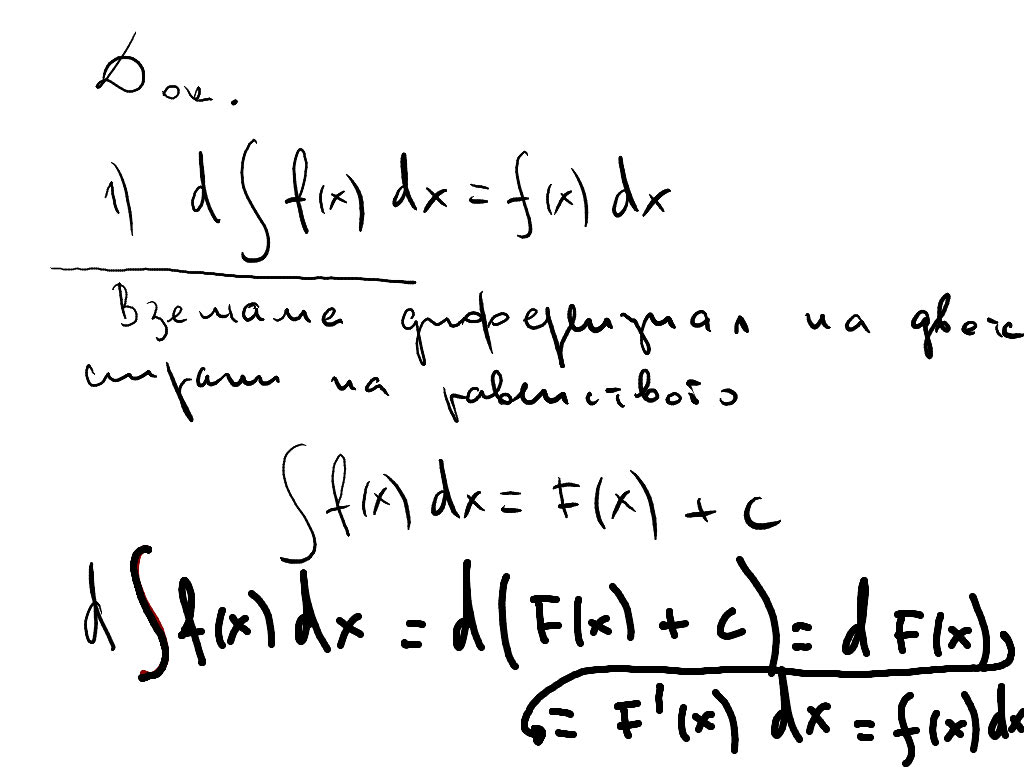 Док.
1) d ∫ f(x) dx = f(x) dx
Вземаме диференциал на двете
страни на равенството
∫ f(x) dx = F(x) + c
d ∫ f(x) dx = d(F(x) + c) = d F(x)
= F'(x) dx = f(x) dx